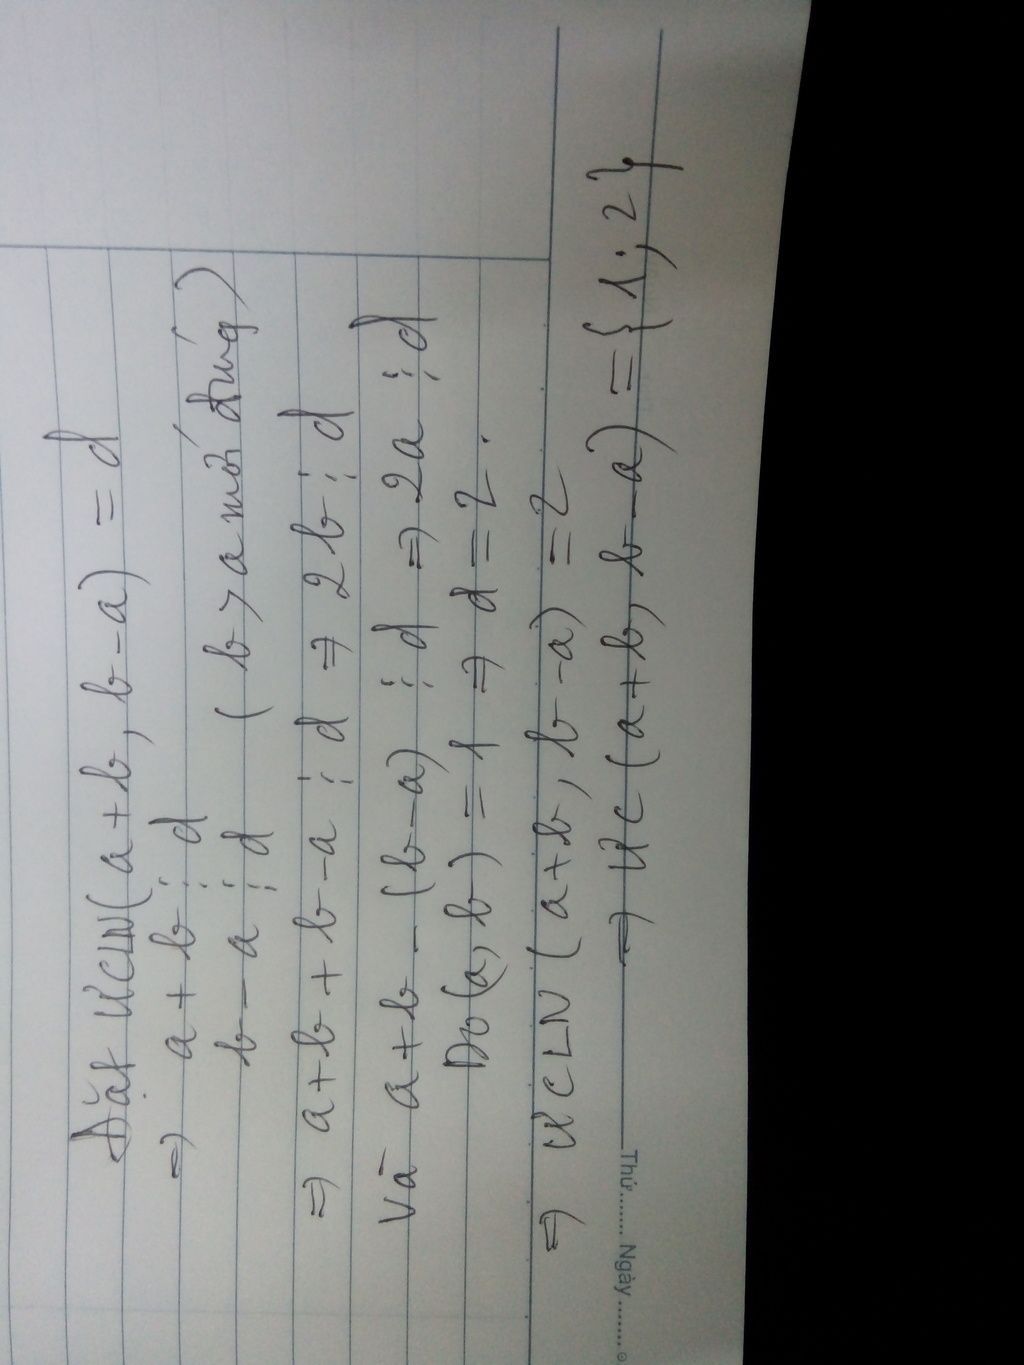 Đặt ƯCLN(a+b, b-a) = d
=> a+b ⋮ d
b-a ⋮ d (b > a mới đúng)
=> a+b+b-a ⋮ d => 2b ⋮ d
Và a+b-(b-a) ⋮ d => 2a ⋮ d
Do (a, b) = 1 => d = 2.
=> ƯCLN (a+b, b-a) = 2
=> ƯC (a+b, b-a) = {1; 2}
Thứ........ Ngày........